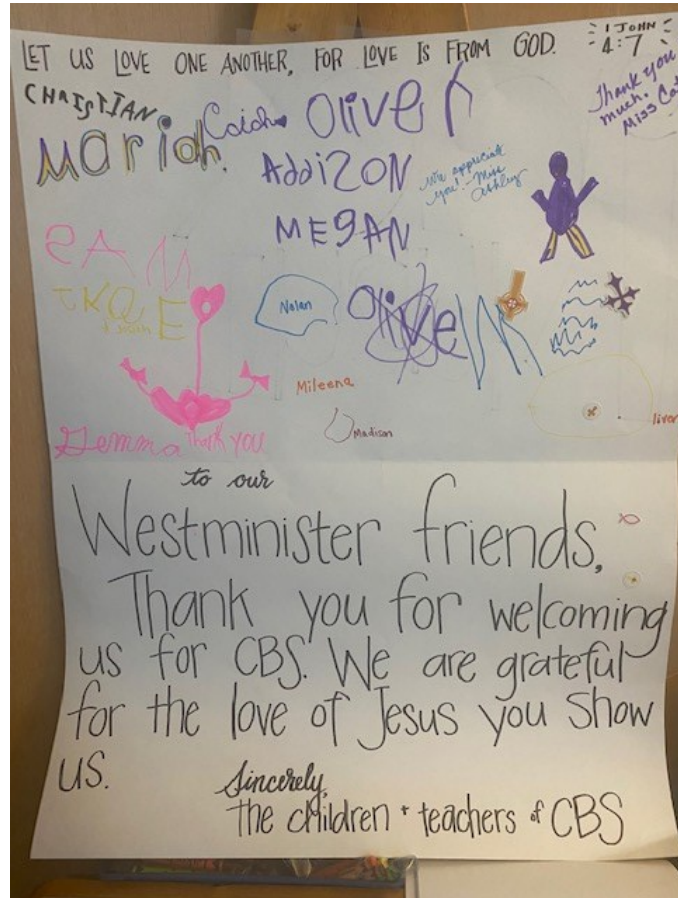 LET US LOVE ONE ANOTHER, FOR LOVE IS FROM GOD. 1 JOHN 4:7
CHRISTIAN
Mariah Oliver
Thank you
much.
Miss
Addizon
We appreciate
you! - Miss
Ashley
MEgAN
SAM
Nolan
Olive
Mileena
Madison
liver
Gemma Thank you
to our
Westminister friends,
Thank you for welcoming
us for CBS. We are grateful
for the love of Jesus you show
us.
Sincerely,
The children + teachers of CBS